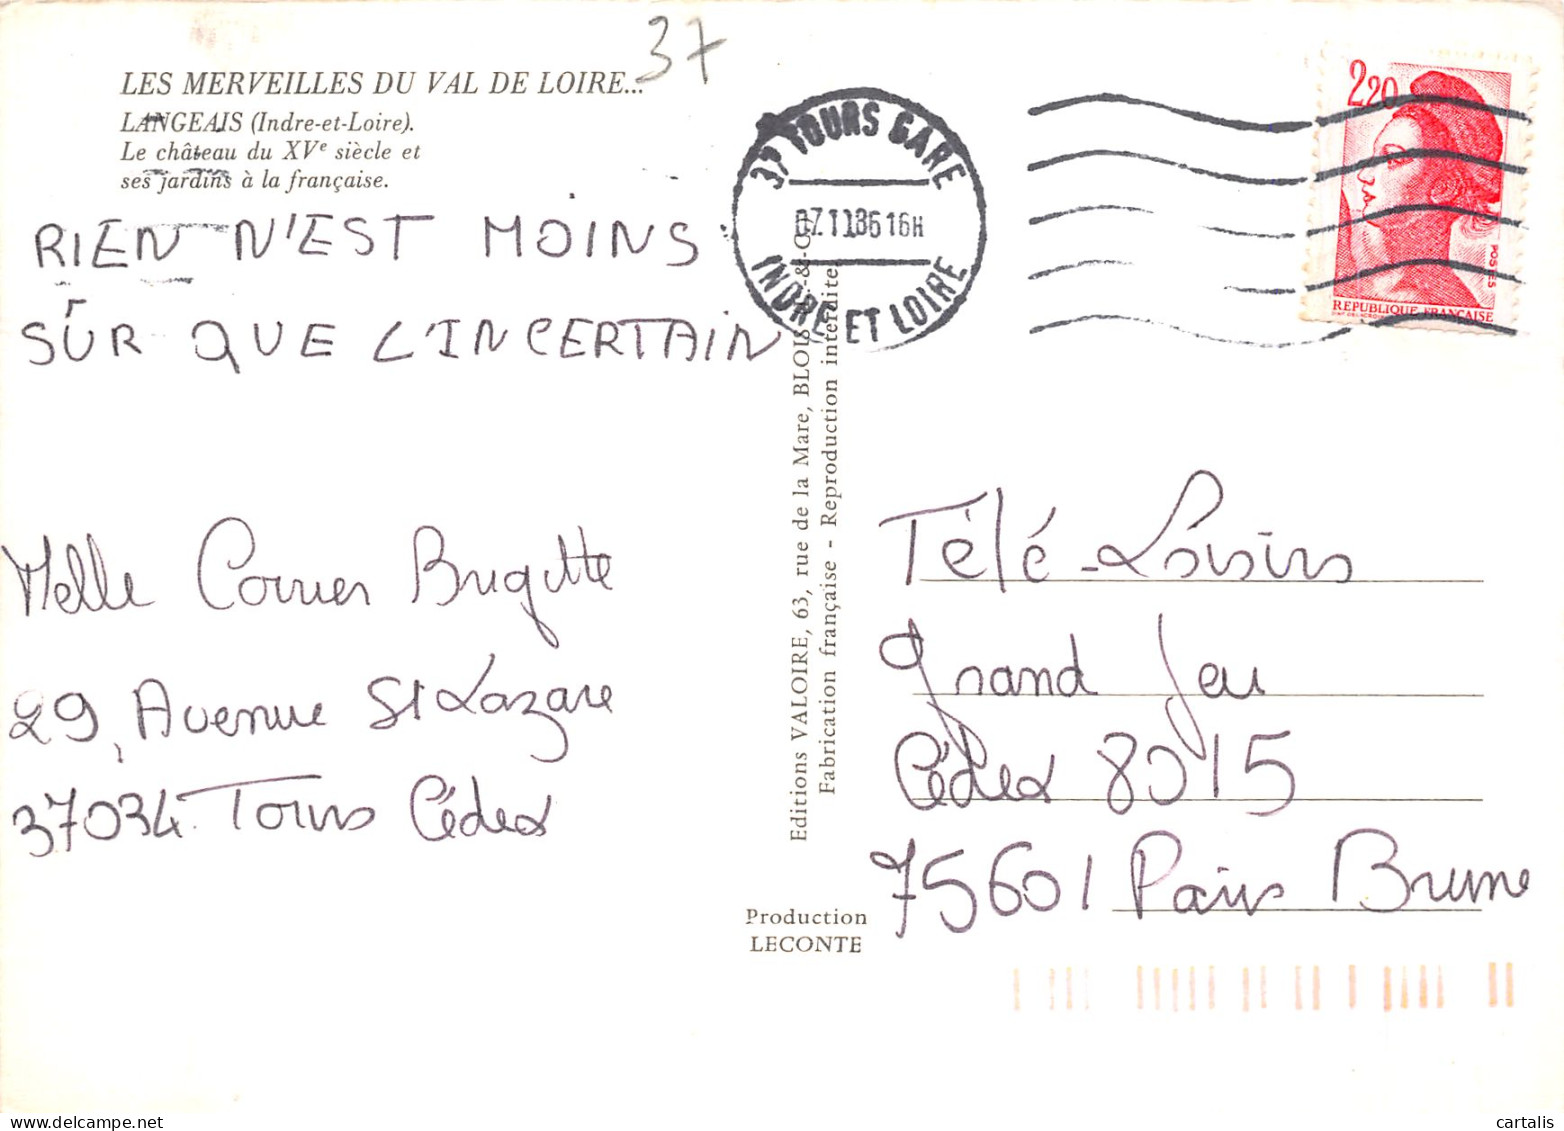 37
LES MERVEILLES DU VAL DE LOIRE...
LANGEAIS (Indre-et-Loire).
Le château du XVe siècle et
ses jardins à la française.
RIEN N'EST MOINS
SÛR QUE L'INCERTAIN
Melle Corrier Brigitte
29, Avenue St Lazare
37034 Tours Cédex
37 TOURS GARE
07.11.86 16H
INDRE ET LOIRE
2,20
POSTES
REPUBLIQUE FRANÇAISE
Editions VALOIRE, 63, rue de la Mare, BLOIS
Fabrication française - Reproduction interdite.
Production
LECONTE
Télé-Loisirs
Grand Jeu
Cédex 8015
75601 Paris Brune
cartalis